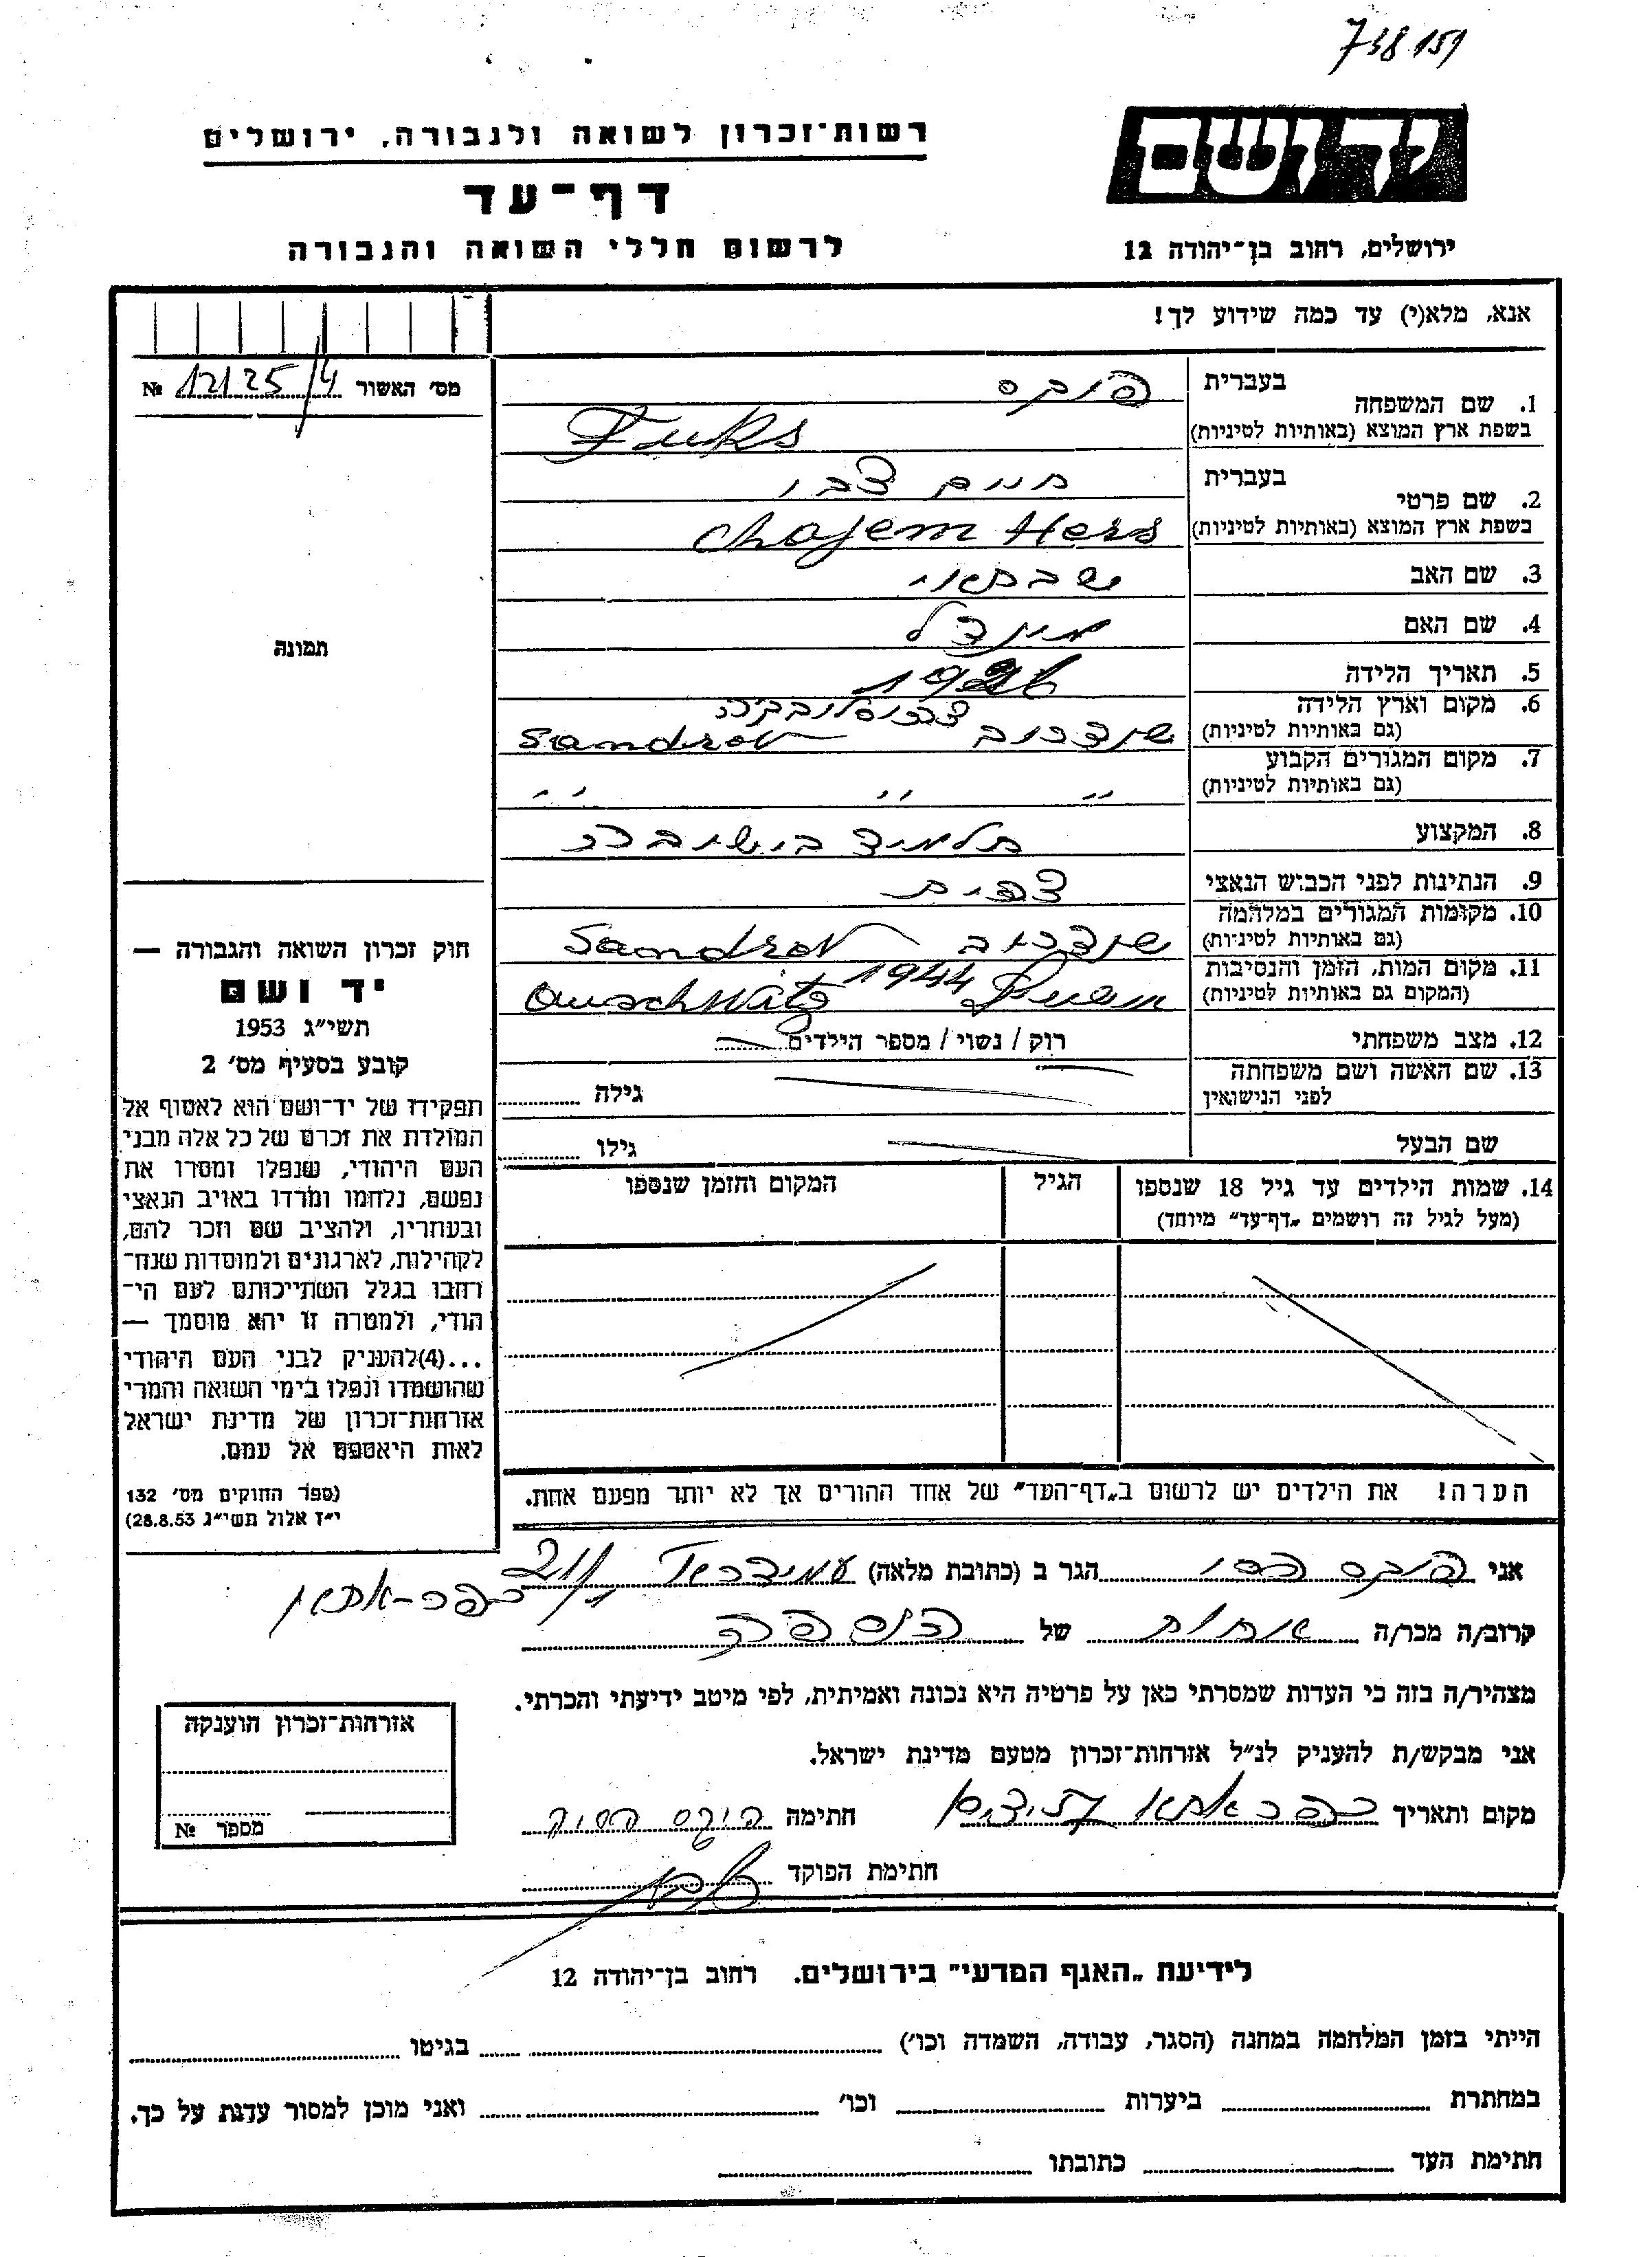 738151
יד ושם
ירושלים, רחוב בן־יהודה 12
רשות־זכרון לשואה ולגבורה, ירושלים
דף־עד
לרשום חללי השואה והגבורה
אנא, מלא(י) עד כמה שידוע לך!
מס׳ האשור 12125/4 №
תמונה
1. שם המשפחה
בעברית פוקס
בשפת ארץ המוצא (באותיות לטיניות) Fuks
2. שם פרטי
בעברית חיים צבי
בשפת ארץ המוצא (באותיות לטיניות) Chajem Hers
3. שם האב שבתאי
4. שם האם מינדל
5. תאריך הלידה 1926
6. מקום וארץ הלידה
(גם באותיות לטיניות) שנדרוב Sandrov
7. מקום המגורים הקבוע
(גם באותיות לטיניות) ״ ״ ״
8. המקצוע תלמיד בישיבה
9. הנתינות לפני הכבוש הנאצי צ׳כית
10. מקומות המגורים במלחמה
(גם באותיות לטיניות) שנדרוב Sandrov
11. מקום המות, הזמן והנסיבות
(המקום גם באותיות לטיניות) 1944 Auschwitz
12. מצב משפחתי רוק / נשוי / מספר הילדים
13. שם האשה ושם משפחתה
לפני הנישואין
גילה
שם הבעל
גילו
14. שמות הילדים עד גיל 18 שנספו
(מעל לגיל זה רושמים „דף־עד״ מיוחד)
הגיל
המקום והזמן שנספו
הערה! את הילדים יש לרשום ב„דף־העד״ של אחד ההורים אך לא יותר מפעם אחת.
חוק זכרון השואה והגבורה —
יד ושם
תשי״ג 1953
קובע בסעיף מס׳ 2
תפקידו של יד־ושם הוא לאסוף אל
המולדת את זכרם של כל אלה מבני
העם היהודי, שנפלו ומסרו את
נפשם, נלחמו ומרדו באויב הנאצי
ובעוזריו, ולהציב שם וזכר להם,
לקהילות, לארגונים ולמוסדות שנח־
רחבו בגלל השתייכותם לעם הי־
הודי, ולמטרה זו יהא מוסמך —
...(4)להעניק לבני העם היהודי
שהושמדו ונפלו בימי השואה והמרי
אזרחות־זכרון של מדינת ישראל
לאות היאספם אל עמם.
(ספר החוקים מס׳ 132
י״ז אלול תשי״ג 28.8.53)
אני פוקס הגר ב (כתובת מלאה) עמידר
כפר־אתא
קרוב/ה מכר/ה אחות של הנספה
מצהיר/ה בזה כי העדות שמסרתי כאן על פרטיה היא נכונה ואמיתית, לפי מיטב ידיעתי והכרתי.
אני מבקש/ת להעניק לנ״ל אזרחות־זכרון מטעם מדינת ישראל.
מקום ותאריך כפר אתא חתימה פוקס
חתימת הפוקד
אזרחות־זכרון הוענקה
מספר №
לידיעת „האגף המדעי״ בירושלים. רחוב בן־יהודה 12
הייתי בזמן המלחמה במחנה (הסגר, עבודה, השמדה וכו׳) בגיטו
במחתרת ביערות וכו׳ ואני מוכן למסור עדות על כך.
חתימת העד כתובתו